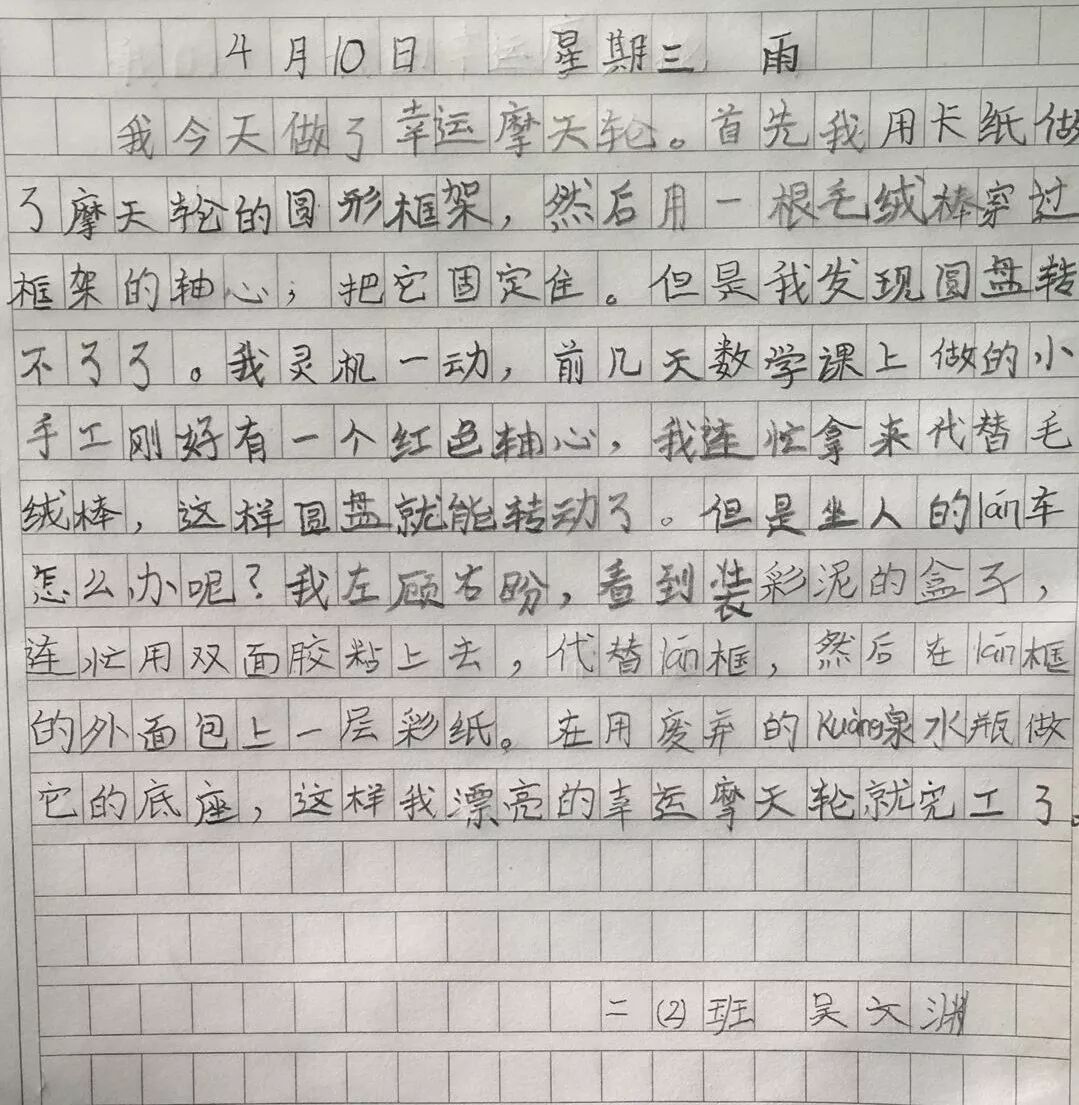 4月10日 星期三 雨
我今天做了幸运摩天轮。首先我用卡纸做
了摩天轮的圆形框架，然后用一根毛绒棒穿过
框架的轴心，把它固定住。但是我发现圆盘转
不了了。我灵机一动，前几天数学课上做的小
手工刚好有一个红色轴心，我连忙拿来代替毛
绒棒，这样圆盘就能转动了。但是坐人的lán车
怎么办呢？我左顾右盼，看到装彩泥的盒子，
连忙用双面胶粘上去，代替lán框，然后在lán框
的外面包上一层彩纸。在用废弃的Kuàng泉水瓶做
它的底座，这样我漂亮的幸运摩天轮就完工了。
二(2)班 吴文渊